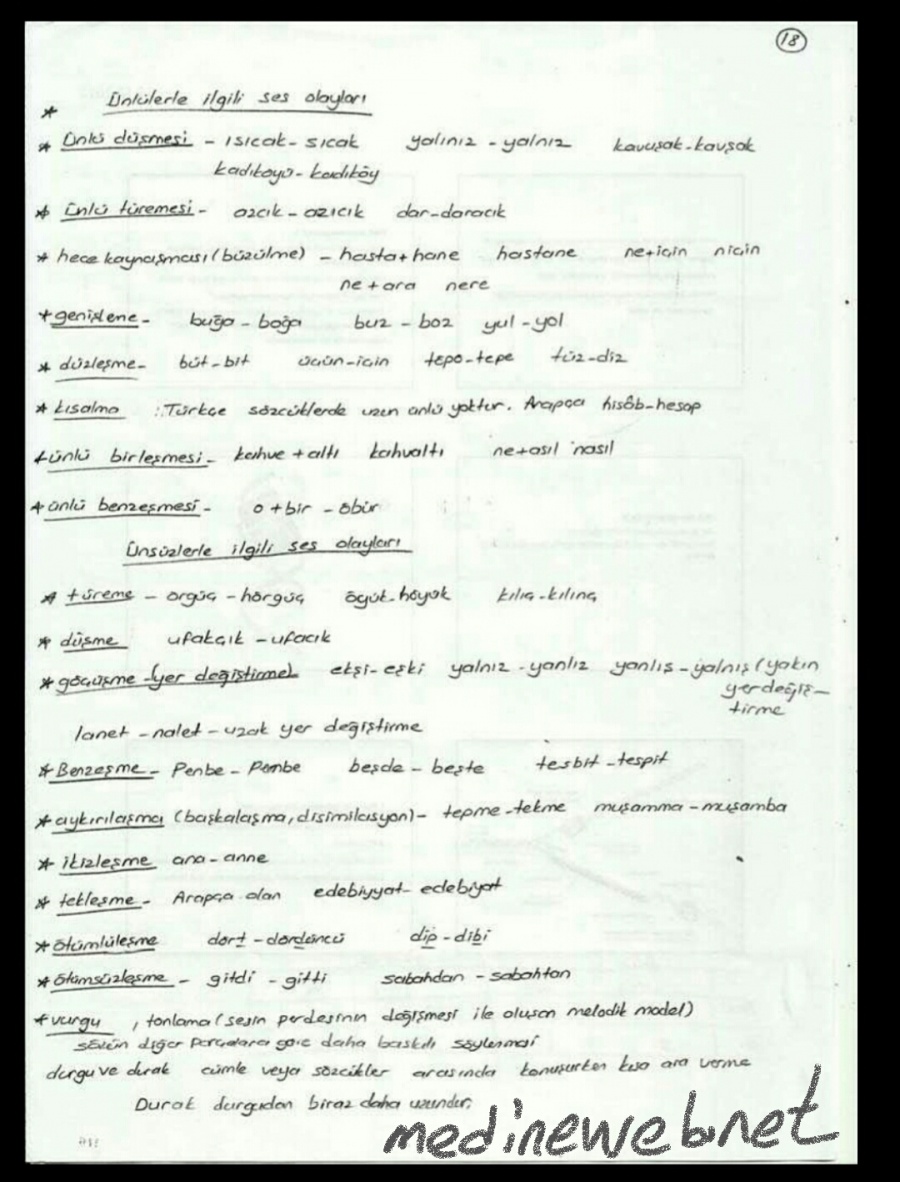 18
* Ünlülerle ilgili ses olayları
* Ünlü düşmesi - ısıcak - sıcak yalınız - yalnız kavuşak - kavşak
kadıköyü - kadıköy
* Ünlü türemesi - azcık - azıcık dar - daracık
* hece kaynaşması (büzülme) - hasta + hane hastane ne + için niçin
ne + ara nere
* genişleme - buğa - boğa buz - boz yul - yol
* düzleşme - büt - bit üçün - için tepö - tepe tüz - diz
* kısalma : Türkçe sözcüklerde uzun ünlü yoktur. Arapça hisâb - hesap
* ünlü birleşmesi - kahve + altı kahvaltı ne + asıl nasıl
* ünlü benzeşmesi - o + bir - öbür
Ünsüzlerle ilgili ses olayları
* türeme - örgüç - hörgüç öyük - höyük kılıç - kılınç
* düşme ufakçık - ufacık
* göçüşme - (yer değiştirme) ekşi - eşki yalnız - yanlız yanlış - yalnış (yakın
yer değiş-
tirme
lanet - nalet - uzak yer değiştirme
* Benzeşme - Penbe - Pembe beşde - beşte tesbit - tespit
* aykırılaşma (başkalaşma, disimilasyon) - tepme - tekme muşamma - muşamba
* ikizleşme ana - anne
* tekleşme - Arapça olan edebiyyat - edebiyat
* ötümlüleşme dört - dördüncü dip - dibi
* ötümsüzleşme - gitdi - gitti sabahdan - sabahtan
* vurgu , tonlama (sesin perdesinin değişmesi ile oluşan melodik model)
sözün diğer parçalara göre daha baskılı söylenmesi
durgu ve durak cümle veya sözcükler arasında konuşurken kısa ara verme
Durak durgudan biraz daha uzundur.
medineweb.net